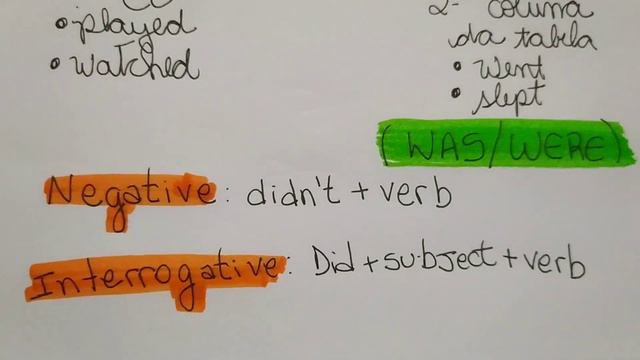 • played
• watched
2ª coluna
da tabela
• went
• slept
(WAS/WERE)
Negative: didn't + verb
Interrogative: Did + subject + verb